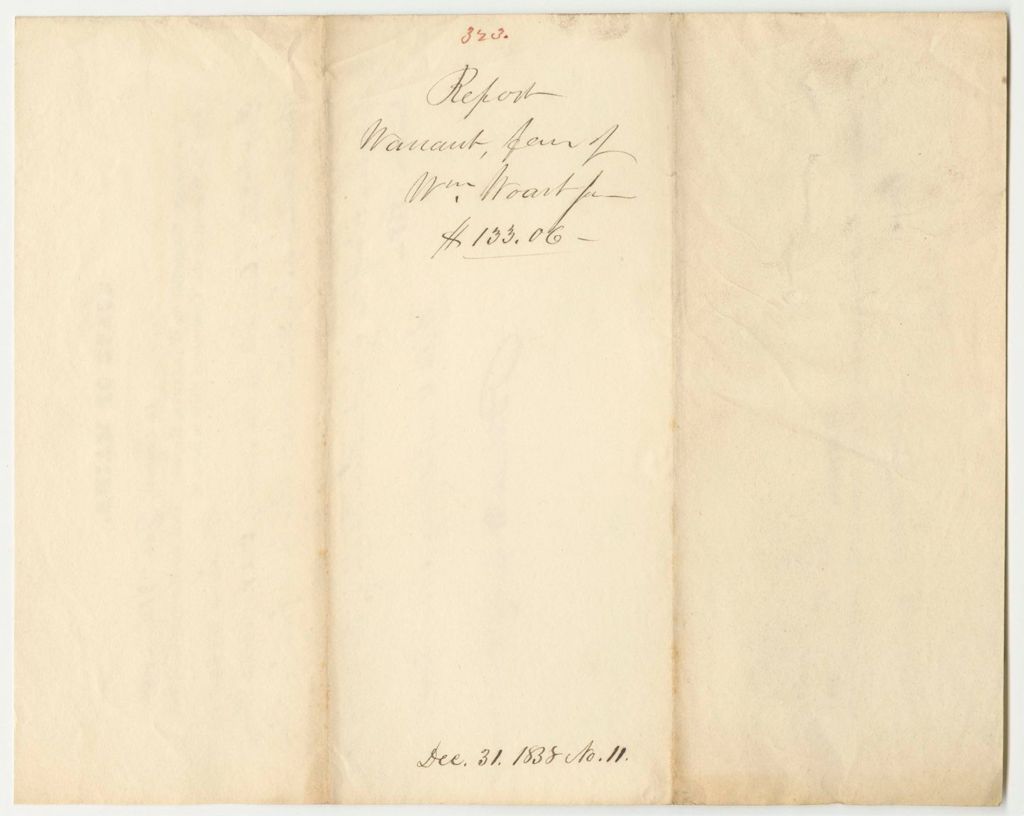 323.
Report
Warrant, favr of
Wm. Woart for
$133.06 -
Dec. 31. 1838 No. 11.